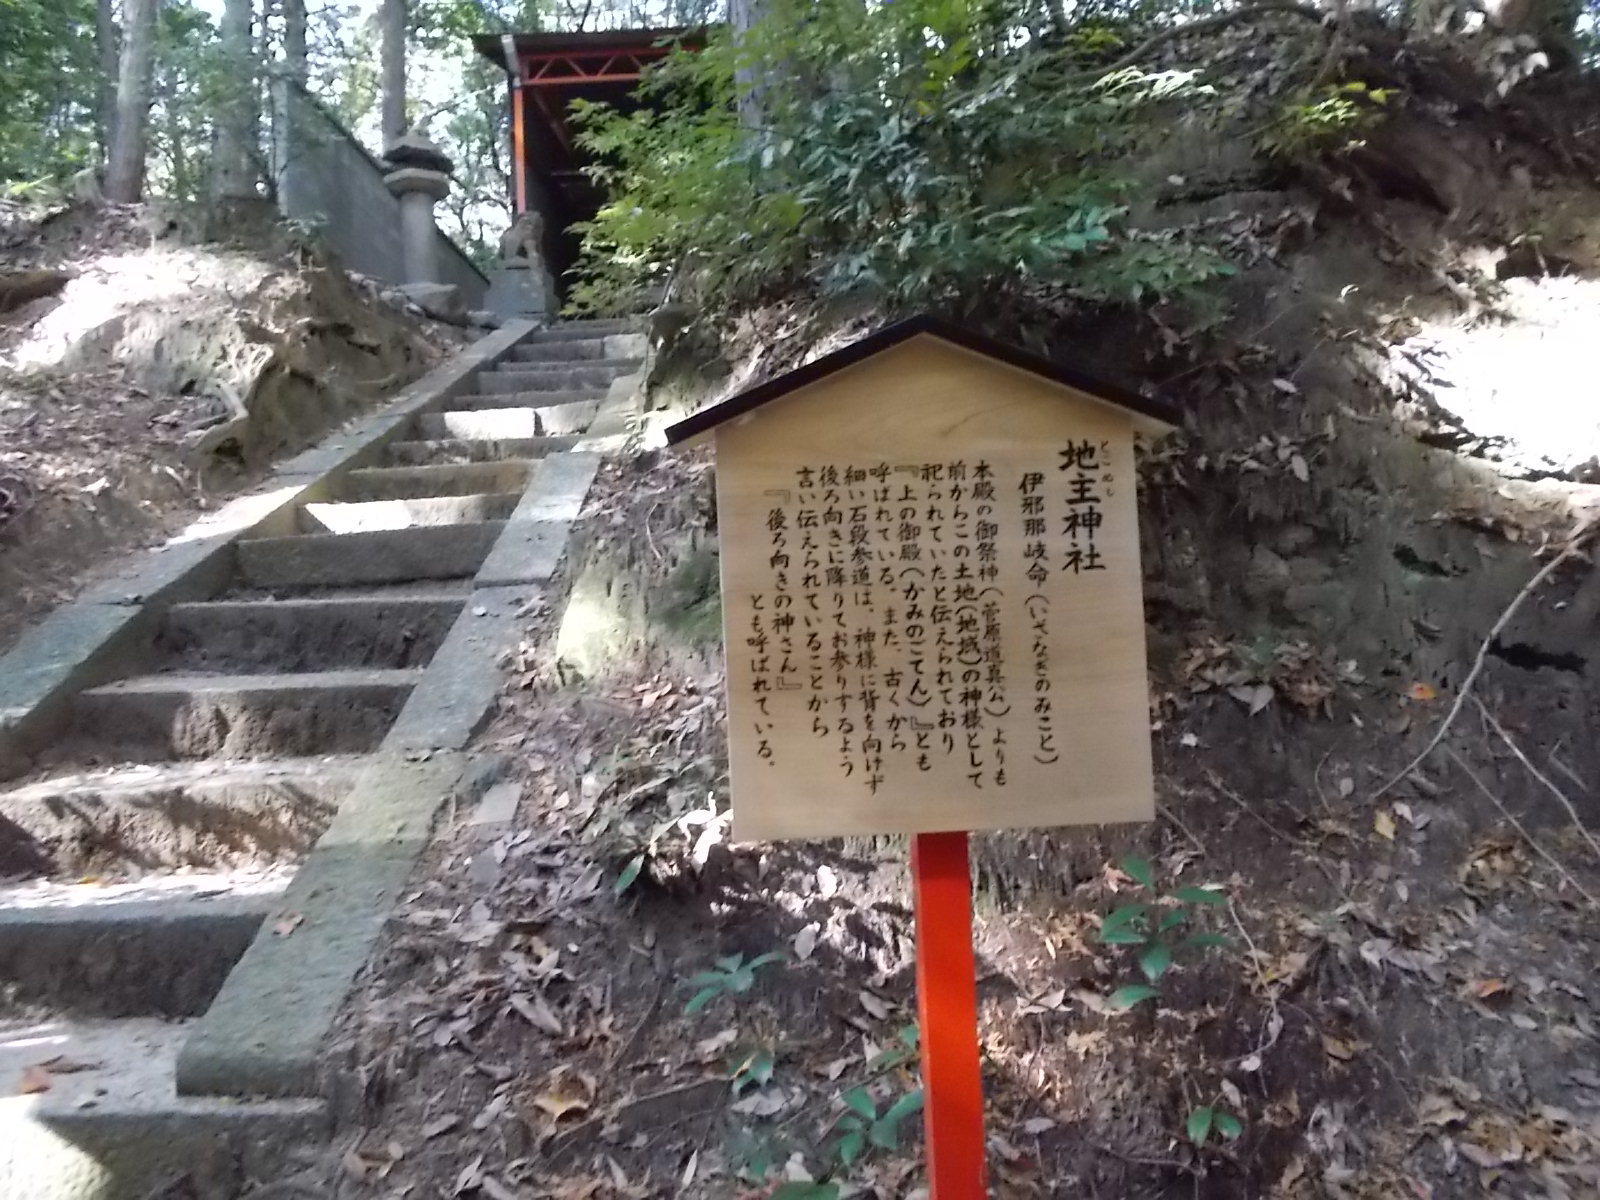 地主神社
とこぬし
伊邪那岐命(いざなぎのみこと)
本殿の御祭神(菅原道真公)よりも
前からこの土地(地域)の神様として
祀られていたと伝えられており
『上の御殿(かみのごてん)』とも
呼ばれている。また、古くから
細い石段参道は、神様に背を向けず
後ろ向きに降りてお参りするよう
言い伝えられていることから
『後ろ向きの神さん』
とも呼ばれている。